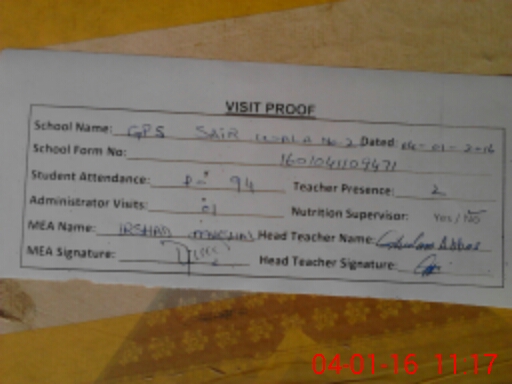 VISIT PROOF
School Name: GPS SAIR WALA No.2 Dated: 04-01-2016
School Form No: 1601041109471
Student Attendance: 94 Teacher Presence: 2
Administrator Visits: Nutrition Supervisor: Yes / No
MEA Name: IRSHAD Head Teacher Name: Ghulam Abbas
MEA Signature: Head Teacher Signature:
04-01-16 11:17